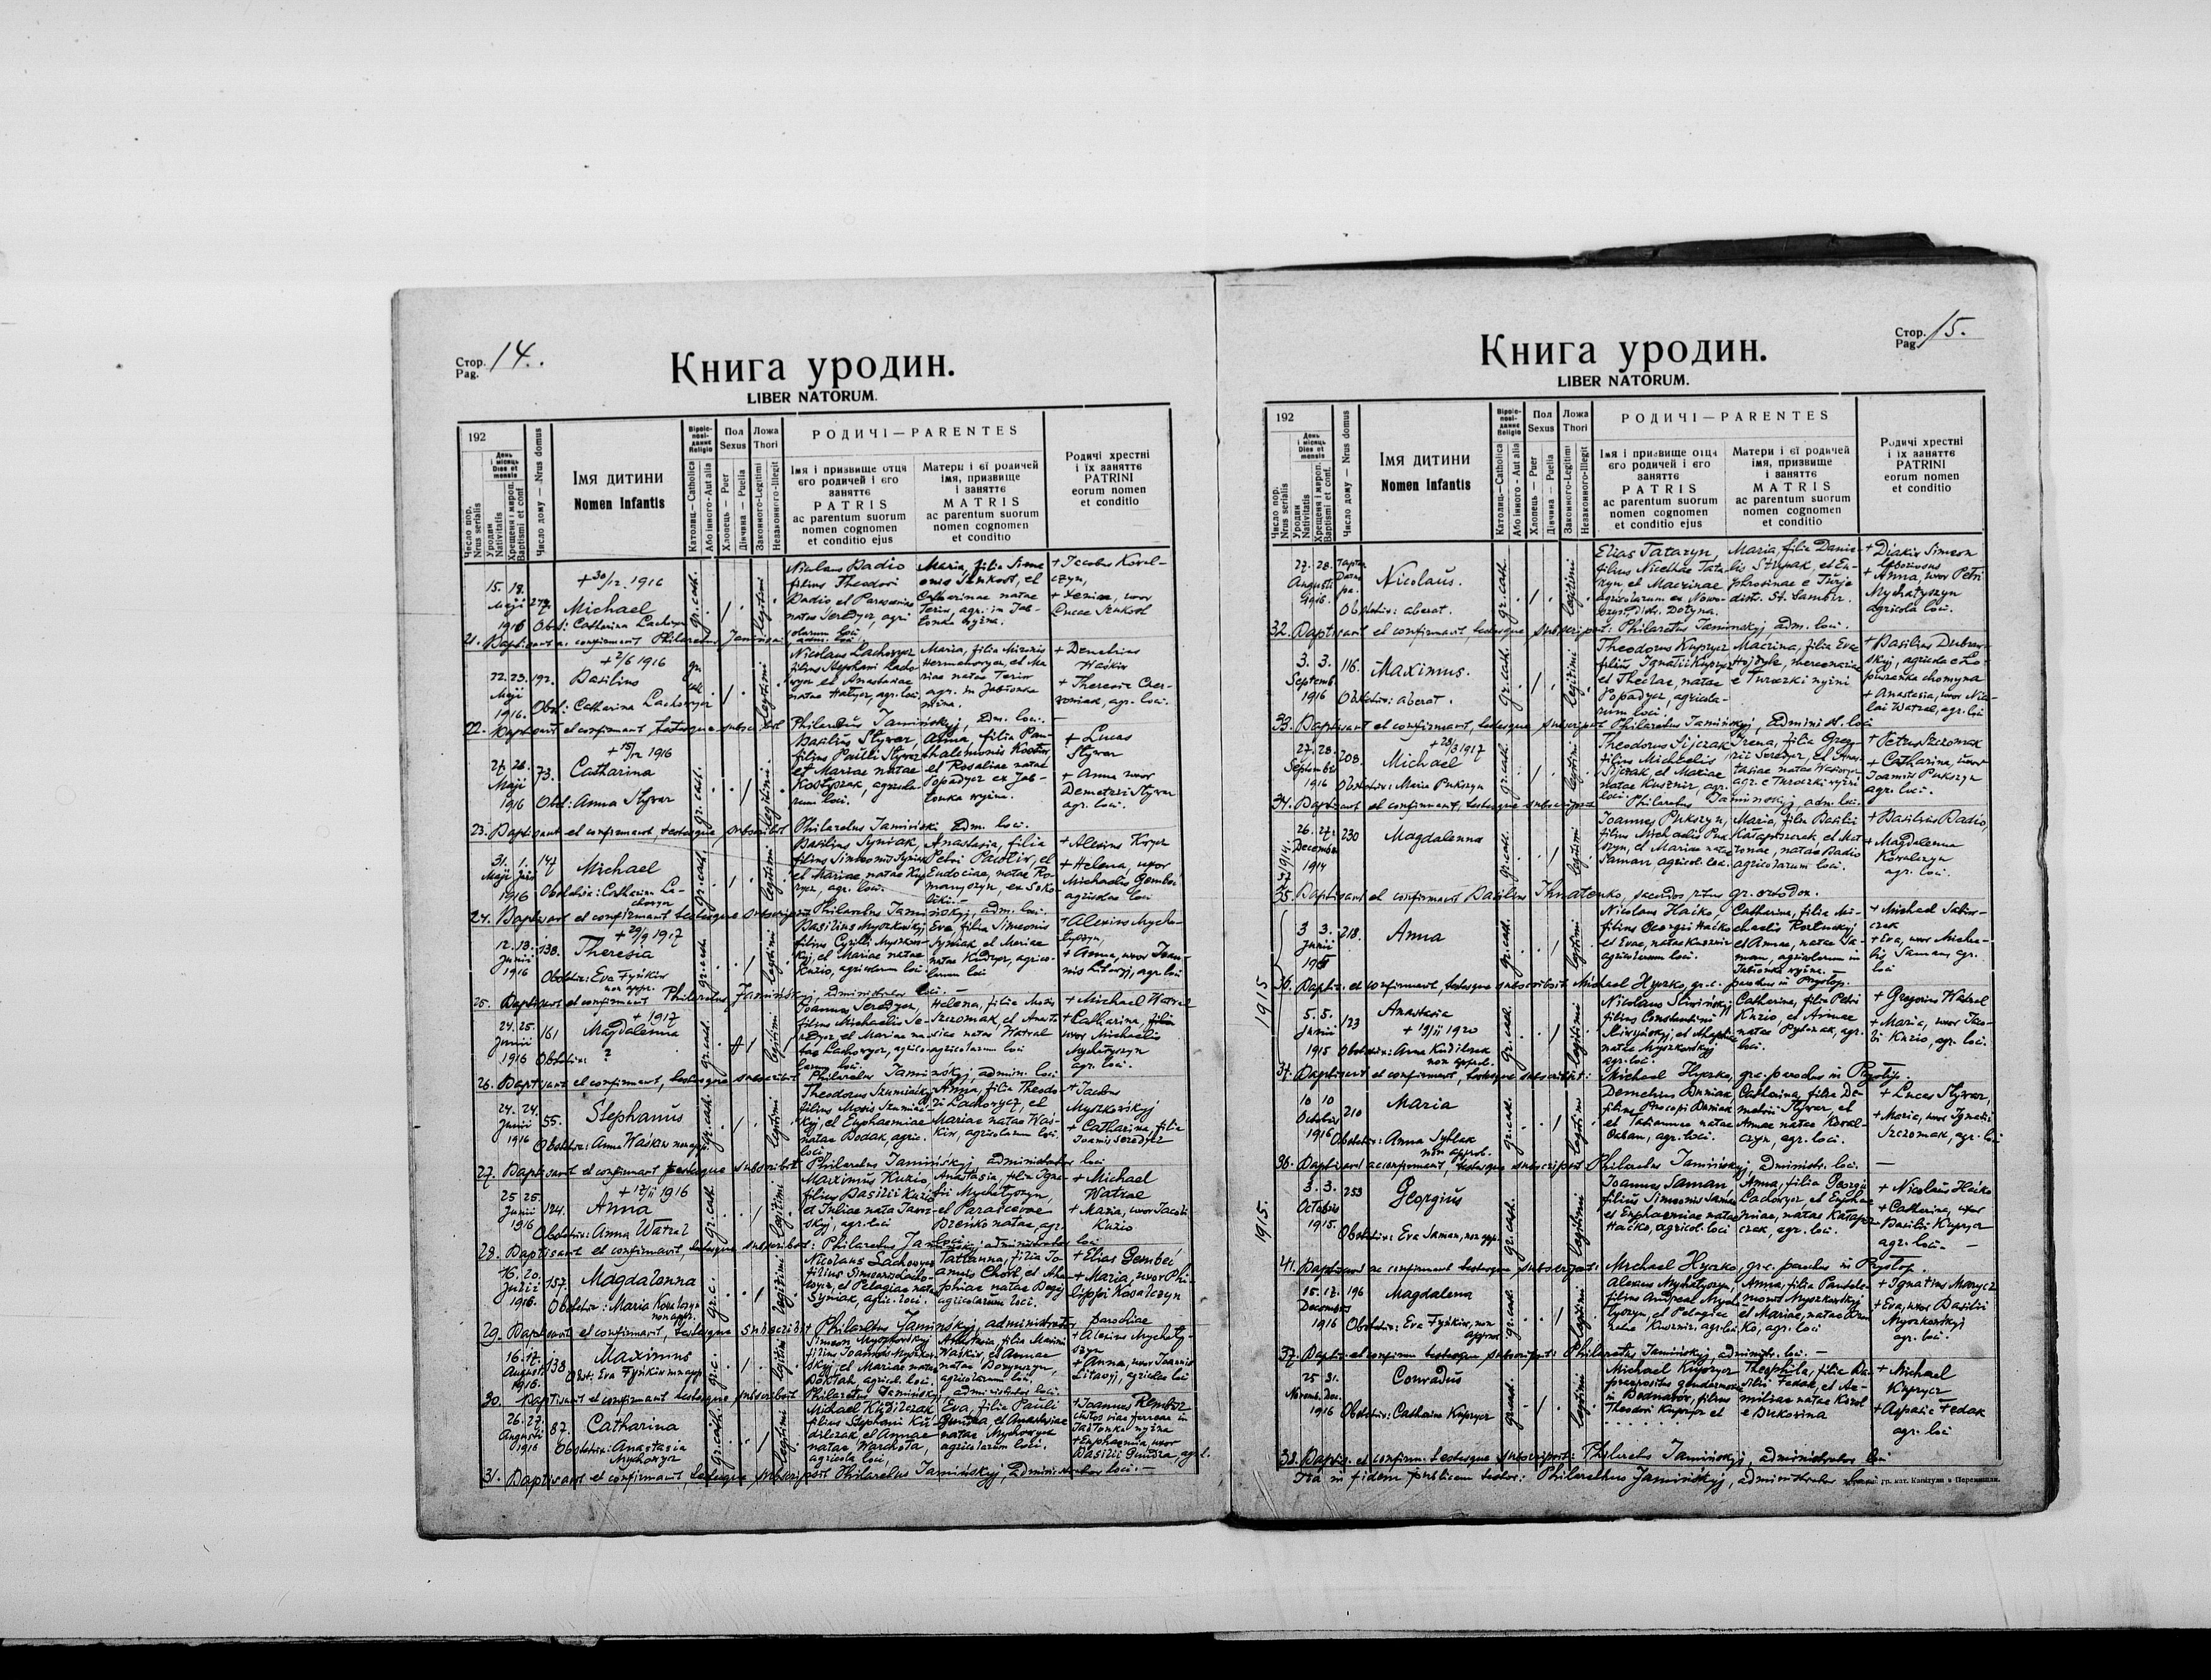 Стор. 14.
Pag.
Книга уродин.
LIBER NATORUM.
192
Число пор.
Nrus serialis
День і місяць
Dies et mensis
Уродин
Nativitatis
Хрещеня і мироп.
Baptismi et conf.
Число дому — Nrus domus
Імя дитини
Nomen Infantis
Religio
Католиц.—Catholica
Або інного - Aut alia
Пол
Sexus
Хлопець — Puer
Дівчина — Puella
Ложа
Thori
Законного-Legitimi
Незаконного-Illegit
РОДИЧІ — PARENTES
Імя і призвище отця
єго родичей і єго
заняттє
PATRIS
ac parentum suorum
nomen cognomen
et conditio ejus
Матери і єї родичей
імя, призвище
і заняттє
MATRIS
ac parentum suorum
nomen cognomen
et conditio
Родичі хрестні
і їх заняттє
PATRINI
eorum nomen
et conditio
15. 18.
Maji
1916
+ 30/12 1916
Michael
Obst: Catharina Lachowycz
gr. cath.
legitimi
Nicolaus Badio
filius Theodori
Badio, et Parasceviae
natae Seredycz, agri
Maria, filia Sime
onis Szukost, et
Catharinae natae
Terix, agr. in Jab-
lonka wyżna.
+ Jacobus Koval-
czyn,
+ Xenia, uxor
Lucae Szukost
21. Baptisavit a. confirmavit Philaretus
22. 23. 192.
Maji
1916.
+ 2/6 1916
Basilius
Obst: Catharina Lachowycz
legitimi
Nicolaus Lachowycz
filius Stephani Lacho-
wycz et Anastasiae
natae Hatycz, agr. loci
Maria, filia Mironis
Hermanowycz, et Ma
riae natae Terix
agr. in Jablonka
+ Demetrius
Haćko
+ Theresia
agr. loci.
22. Baptisavit et confirmavit testesque subscribit Philaretus Jamińskyj, adm. loci. —
27. 28. 73.
Maji
1916
+ 15/12 1916
Catharina
Obst: Anna Styrar
gr. cath.
legitimi
Basilius Styrar,
filius Paulli Styrar
et Mariae natae
Kostyszak, agricola-
rum loci.
Anna, filia Pan-
thalemonis Kostur
et Rosaliae natae
Popadycz ex Jab-
lonka wyżna.
+ Lucas
Styrar
+ Anna uxor
Demetrii Styrar
agr. loci.
23. Baptisavit et confirmavit, testesque subscribit Philaretus Jamiński adm. loci.
31. 1. 147
Maji Junii
1916
Michael
Obstetrix: Catharina La-
chowycz
gr. cath.
legitimi
Basilius Syniak,
filius Simeonis Syniak
et Mariae, natae Kup
rycz, agr. loci.
Anastasia, filia
Petri Pawliw, et
Eudociae, natae Ro-
manyszyn, ex Soko-
liki. —
+ Alexius Kuprycz
+ Helena, uxor
Michaelis Gembei
agricolae loci
24. Baptisavit et confirmavit testesque subscripsit Philaretus Jamińskyj, adm. loci.
12. 13. 138.
Junii
1916
+ 29/9 1917
Theresia
Obstetrix: Eva Fyńkiw
non appr.
gr. cath.
legitimi
Basilius Myszkowskyj
filius Cyrilli Myszkow-
skyj, et Mariae natae
Kuzio, agricolarum loci
Eva, filia Simeonis
Syniak et Mariae
natae Kudrycz, agrico-
larum loci
+ Alexius Mycha-
tyszyn,
+ Anna, uxor Joan-
nis Litowyj, agr. loci
25. Baptisavit et confirmavit Philaretus Jamińskyj, administrator loci. —
24. 25. 161
Junii
1916
+ 1917
Magdalenna
Obstetrix: ?
gr. cath.
legitimi
Joannes Seredycz,
filius Michaelis Se-
redycz, et Mariae na-
tae Lachowycz, agrico-
larum loci.
Helena, filia Mosis
Szczomak, et Anasta-
siae natae Watral
agricolarum loci
+ Michael Watral
+ Catharina,
uxor Michaelis
Mychatyszyn
agr. loci.
26. Baptisavit et confirmavit, testesque subscribit Philaretus Jamińskyj, admin. loci
24. 24. 55.
Junii
1916
Stephanus
Obstetrix: Anna Waśkiw non appr.
gr. cath.
legitimi
Theodorus Szumińskyj
filius Mosis Szumiń-
skyj, et Euphemiae
natae Dodak, agric.
loci
Anna, filia Theodo-
ri Lachowycz, et
Mariae natae Waś-
kiw, agricolarum loci.
+ Jacobus
Myszkowskyj
+ Catharina, filia
Joannis Seredycz
27. Baptisavit et confirmavit testesque subscribit Philaretus Jamińskyj, administrator loci
25 25. 124.
Junii
1916
+ 17/11 1916
Anna
Obstetrix: Anna Watral
gr. cath.
legitimi
Maximus Kuzio
filius Basilii Kuzio
et Juliae nata Jawor-
skyj, agr. loci
Anastasia, filia Igna-
tii Mychatyszyn,
et Parascevae
Dzeńko natae, agr.
loci
+ Michael
Watral
+ Maria, uxor Jacobi
Kuzio
28. Baptisavit et confirmavit, testesque subscribit: Philaretus Jamińskyj administrator loci
16. 20. 157
Julii
1916.
Magdalenna
Obstetrix: Maria Kovalczyn
non appr.
gr. c.
legitimi
Nicolaus Lachowycz
filius Simeonis Lacho-
wycz, et Pelagiae natae
Syniak, agric. loci.
Tatianna, filia Jo-
annis Chort, et Aha-
phiae natae Badij
agricolarum loci.
+ Elias Gembei
+ Maria, uxor Phi-
lippi Kovalczyn
29. Baptisavit et confirmavit, testesque subscribit Philaretus Jamińskyj, administrator parochiae
16. 17. 138
Augusti
1916.
Maximus
Obst: Eva Fyńkiw non appr.
gr. c.
legitimi
Simeon Myszkowskyj
filius Joannis Myszkow-
skyj, et Mariae natae
agricol. loci.
Anastasia filia Maximi
Waśkiw, et Annae
natae
agricolarum loci.
+ Alexius Mychaty-
szyn
+ Anna, uxor Joannis
Litawyj, agricolae loci
30. Baptisavit et confirmavit testesque subscribit Philaretus Jamińskyj administrator loci.
26. 27. 87.
Augusti
1916
Catharina
Obstetrix: Anastasia
Mychowycz
gr. cath.
legitimi
Michael Kudilczak
filius Stephani Ku-
dilczak, et Annae
natae Warchola,
agricola loci,
Eva, filia Pauli
Gundza, et Anastasiae
natae Mychowycz
agricolarum loci.
+ Joannes Rembisz
custos viae ferreae in
Jablonka nyżna
+ Euphemia, uxor
Basilii Gundza, agr. l.
31. Baptisavit et confirmavit, testesque subscripsit Philaretus Jamińskyj administrator loci. —
Стор. 15.
Pag.
Книга уродин.
LIBER NATORUM.
192
Число пор.
Nrus serialis
День і місяць
Dies et mensis
Уродин
Nativitatis
Хрещеня і мироп.
Baptismi et conf.
Число дому — Nrus domus
Імя дитини
Nomen Infantis
Religio
Католиц.—Catholica
Або інного - Aut alia
Пол
Sexus
Хлопець — Puer
Дівчина — Puella
Ложа
Thori
Законного-Legitimi
Незаконного-Illegit
РОДИЧІ — PARENTES
Імя і призвище отця
єго родичей і єго
заняттє
PATRIS
ac parentum suorum
nomen cognomen
et conditio ejus
Матери і єї родичей
імя, призвище
і заняттє
MATRIS
ac parentum suorum
nomen cognomen
et conditio
Родичі хрестні
і їх заняттє
PATRINI
eorum nomen
et conditio
27. 28.
Augusti
1916.
Nicolaus.
Obstetrix: aberat.
gr. cath.
legitimi
Elias Tataryn,
filius Nicolai Tata-
ryn et Macrinae
agricolarum ex Nowo-
szyn, distr. Dolyna.
Maria, filia Danie-
lis Strupak, et Eu-
phrosinae e Turje
distr. St. Sambir.
+ Diakiw Simeon
+ Anna, uxor Petri
Mychatyszyn
agricola loci.
32. Baptisavit et confirmavit testesque subscripsit: Philaretus Jaminskyj, adm. loci.
3. 3. 116.
Septemb
1916
Maximus.
Obstetrix: aberat.
gr. cath.
legitimi
Theodorus Kuprycz
filius Ignatii Kuprycz
et Theclae, natae
Popadycz, agricola-
rum loci.
Macrina, filia Eva
Hojdyk, mercenariae
e Turoczki nyżni
+ Basilius Dubraw-
skyj, agricola e Lo-
puszanka chomyna
+ Anastasia, uxor Nico-
lai Watral, agr. loci
33. Baptisavit et confirmavit, testesque subscripsit Philaretus Jamińskyj, administ. loci
27. 28. 208.
Septembris
1916
+ 28/3 1917
Michael
Obstetrix: Maria Pukszyn
gr. cath.
legitimi
Theodorus Sijczak
filius Michaelis
Sijczak, et Mariae
natae Kusznir, agr.
loci.
Irena, filia Grego-
rii Seredycz, et Anas-
tasiae natae
agr. e Turoczki wyżni
+ Petrus Szczomak
+ Catharina, uxor
Joannis Pukszyn
agr. loci.
34. Baptisavit et confirmavit, testesque subscripsit Philaretus Jaminskyj, adm. loci.
26. 27. 230
Decembr
1914
Magdalenna
gr. cath.
legitimi
Joannes Pukszyn,
filius Michaelis Puk
szyn, et Mariae natae
Saman agricol. loci.
Maria, filia Basilii
Kałapiszczak, et Mat
ronae, natae Badio
agricolarum loci.
+ Basilius Badio,
+ Magdalenna
Kovalczyn
agr. loci.
35. Baptisavit et confirmavit Basilius Ihnatenko, sacerdos ritus gr. ortodox.
1915
3 3. 218.
Junii
1915
Anna
gr. cath.
legitimi
Nicolaus Haćko,
filius Georgii Haćko
et Evae, natae Kusznir
agricolarum loci.
Catharina, filia Mi-
chaelis
et Annae, natae Sa-
man, agricolarum in
Jablonka wyżna. —
+ Michael
+ Eva, uxor Micha-
lis Saman, agr.
loci
36. Baptis. et confirmavit, testesque subscribit: Michael Hyczko, gr. c. parochus in Prystop.
5. 5. 123
Junii
1915
Anastasia
+ 19/11 1920
Obstetrix: Anna Kudilczak
non approb.
gr. cath.
legitimi
Nicolaus Sliwinskyj
filius Constantini
Sliwinskyj, et
natae Myszkowskyj
agr. loci.
Catharina, filia Petri
Kuzio, et Annae
natae Rybczak, agr.
loci.
+ Gregorius Watral
+ Maria, uxor Jaco-
bi Kuzio, agr. loci.
37. Baptisavit et confirmavit, testesque subscribit: Michael Hyczko, gr. c. parochus in Prystop.
10 10 210
Octobris
1916
Maria
Obstetrix: Anna Syblak
non approb.
gr. cath.
legitimi
Demetrius Buniak,
filius Procopi Buniak
et Tatiannae natae
Ochan, agr. loci.
Catharina, filia De-
metrii Styrar, et
Annae natae Koval-
czyn, agr. loci.
+ Lucas Styrar,
+ Maria, uxor Ignatii
Szczomak, agr. loci
36. Baptisavit ac confirmavit, testesque subscripsit Philaretus Jamińskyj, administr. loci. —
1915.
3. 3. 253
Octobris
1915.
Georgius
Obstetrix: Eva Saman, non appr.
gr. cath.
legitimi
Joannes Saman
filius Simeonis Saman
et Euphemiae natae
Haćko, agricol. loci
Anna, filia Georgii
Lachowycz et Euphe
miae, natae Kałapisz-
czak, agr. loci.
+ Nicolaus Haćko
+ Catharina, uxor
Basilii Kuprycz
agr. loci. —
41. Baptisavit ac confirmavit testesque subscripsit: Michael Hyczko, gr. c. parochus in Prystop.
15. 17. 196
Decembris
1916
Magdalena
Obstetrix: Eva Fyńkiw, non
approb
gr. cath.
legitimi
Alexius Mychatyszyn,
filius Andreae Mycha-
tyszyn, et Pelagiae
natae Kusznir, agr. loci
Anna, filia Pantele-
monis Myszkowskyj
et Mariae, natae
agr. loci
+ Ignatius Marycz
+ Eva, uxor Basilii
Myszkowskyj
agr. loci.
37. Baptis. et confirm testesque subscripsit: Philaretus Jamińskyj administr. loci. —
25 31.
Novemb. Dec.
1916
Conradus
Obstetrix: Catharina Kuprycz
gr. cath.
legitimi
Michael Kuprycz
praepositus gendarmorum
in Bednarów, filius
Theodori Kuprycz et
Theophila, filia Ba-
silii Fedak, et Ae-
miliae natae Korol
e Bukovina
+ Michael
Kuprycz
+ Aspasia Fedak
agr. loci
38. Baptis. et confirm. testesque subscripsit: Philaretus Jamińskyj, administrator loci
Ita in fidem publicam testor: Philarethus Jamińskyj, administrator loci.
гр. кат. Капітули в Перемишли.